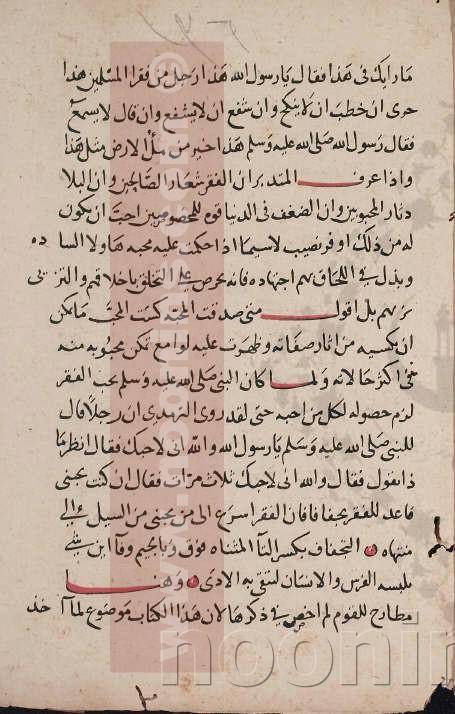 ما رايك في هذا فقال يا رسول الله هذا رجل من فقرا المسلمين هذا
حرى ان خطب ان لا ينكح وان شفع ان لا يشفع وان قال لا يسمع
فقال رسول الله صلى الله عليه وسلم هذا خير من ملأ الارض مثل هذا
واذا عرف المتدبر ان الفقر شعار الصالحين وان البلا
دثار المحبوبين وان الضعف في الدنيا قوه للمخصوصين احب ان يكون
له من ذلك اوفر نصيب لا سيما اذا حكمت عليه محبه هاولا الساده
وبذل في اللحاق بهم اجتهاده فانه يحرص على التخلق باخلاقهم والتزيي
بزيهم بل اقول متى صدقت المحبه كست المحب ما يمكن
ان يكسيه من اثار صفاته وظهرت عليه لوامع تمكن محبوبه منه
في اكثر حالاته ولما كان النبي صلى الله عليه وسلم يحب الفقر
لزم حصوله لكل من احبه حتى لقد روى الترمذي ان رجلا قال
للنبي صلى الله عليه وسلم يا رسول الله والله اني لاحبك فقال انظر ما
ذا تقول فقال والله اني لاحبك ثلاث مرات فقال ان كنت تحبني
فاعد للفقر تجفافا فان الفقر اسرع الى من يحبني من السيل الى
منتهاه التجفاف بكسر التا المثناه فوق وبالجيم وفاين شي
يلبسه الفرس والانسان ليتقي به الاذى وهنا
مطارح للقوم لم اخض في ذكرها لان هذا الكتاب موضوع لما اخذ
noorin